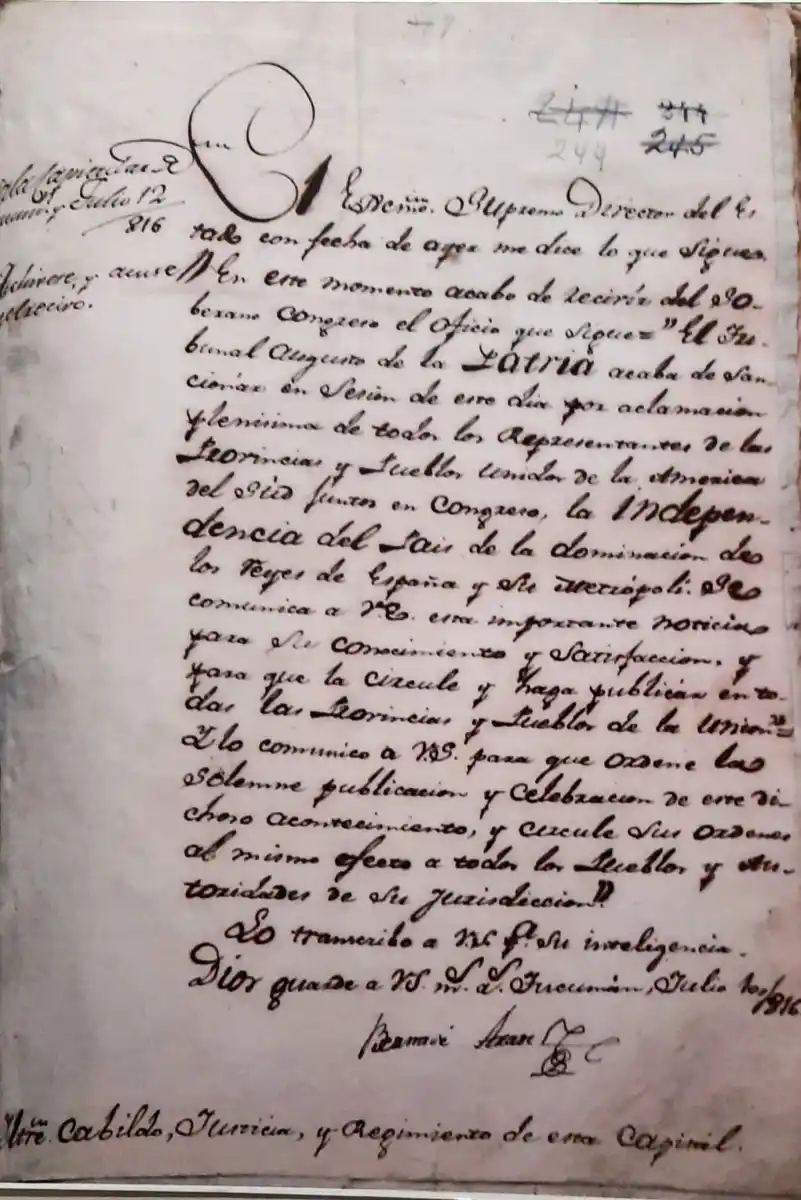 244 344
244 245
Sala Capitular de
Tucumn. y Julio 12
816
Archivese, y acuse
el recivo.
El Exmō. Supremo Director del Es-
tado con fecha de ayer me dice lo que sigue.
"En este momento acabo de recivir del So-
berano Congreso el oficio que sigue= "El Tri-
bunal Augusto de la Patria acaba de San-
cionar en Sesion de este dia por aclamacion
plenisima de todos los Representantes de las
Provincias y Pueblos Unidos de la America
del Sud juntos en Congreso, la Indepen-
dencia del Pais de la dominacion de
los Reyes de España y su Metrópoli. Se
comunica a V.E. esta importante noticia
para su conocimiento y Satisfaccion, y
para que la circule y haga publicar en to-
das las Provincias y Pueblos de la Union"=
Y lo comunico a V.S. para que ordene la
Solemne publicacion y celebracion de este di-
choso acontecimiento, y circule sus ordenes
al mismo efecto a todos los Pueblos y Au-
toridades de su jurisdiccion".
Lo transcribo a V.S. pª. su inteligencia.
Dios guarde a V.S. m.s a.s Tucumán, Julio 10/816
Bernavé Araoz
Iltrē. Cabildo, Justicia, y Regimiento de esta Capital.